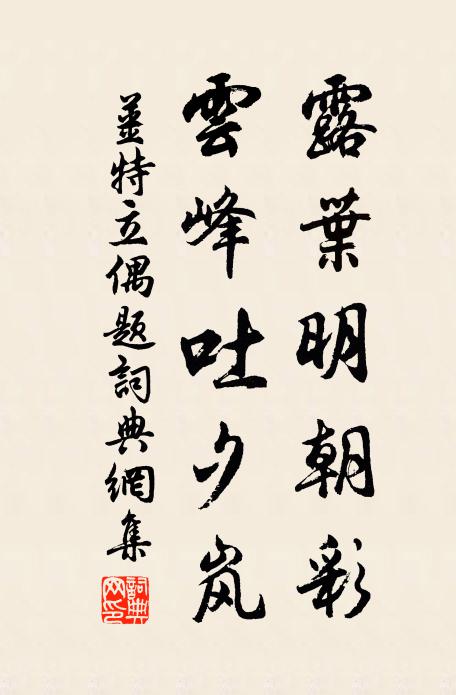 露葉明朝彩
雲峰吐夕岚
薑特立偶题詞典網集
詞典网印